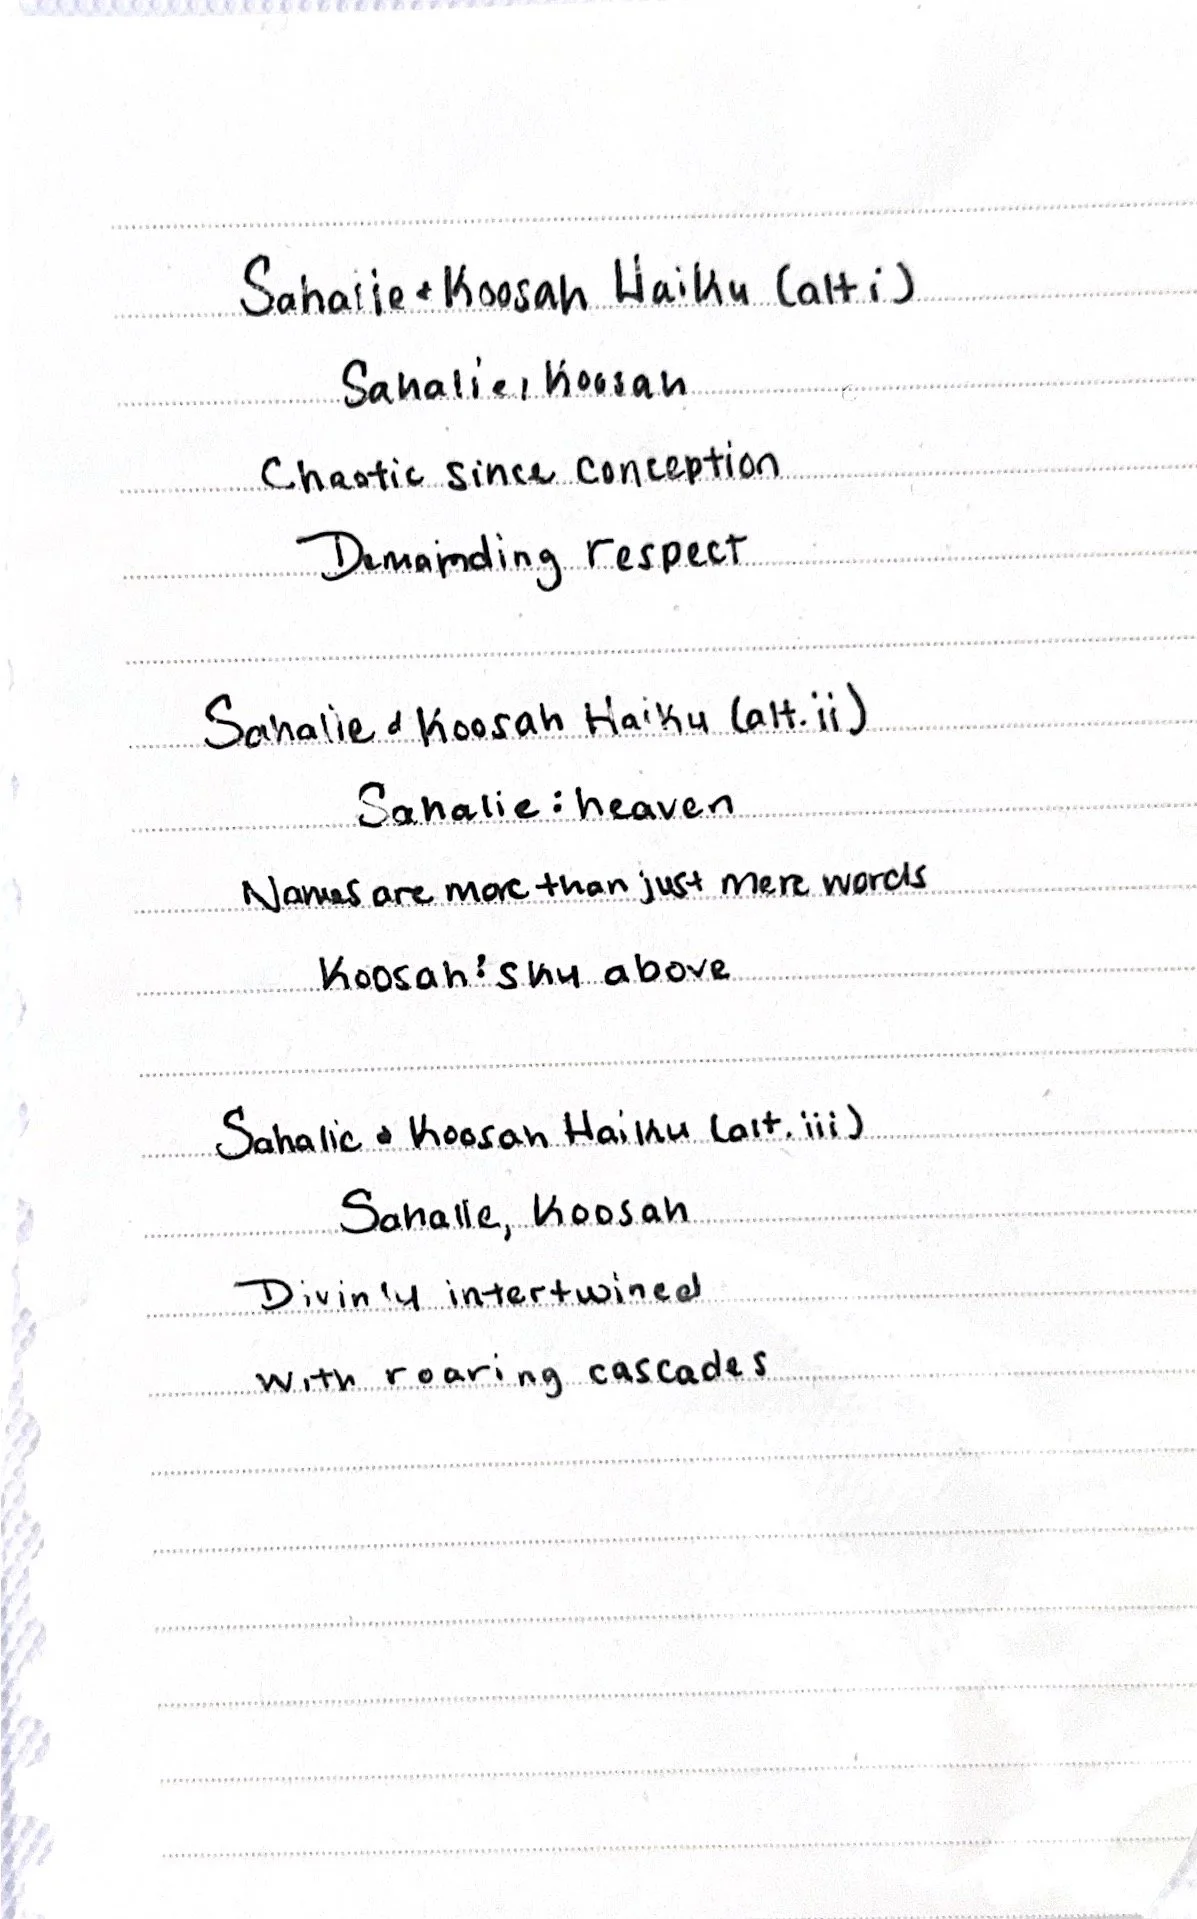 Sahalie & Koosah Haiku (alt i)
Sahalie, Koosah
Chaotic since conception
Demainding respect
Sahalie & Koosah Haiku (alt. ii)
Sahalie: heaven
Names are more than just mere words
Koosah: sky above
Sahalie & Koosah Haiku (alt. iii)
Sahalie, Koosah
Divinly intertwined
With roaring cascades